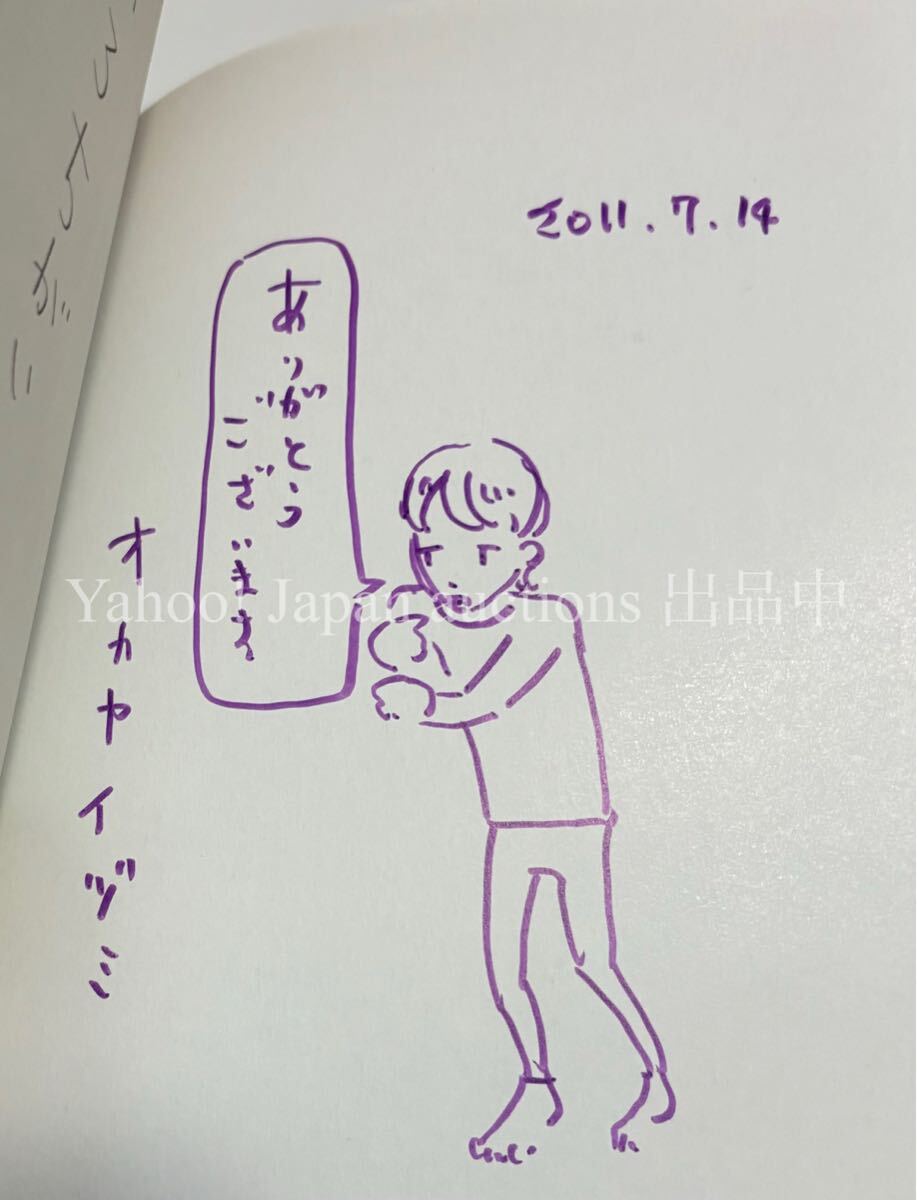 2011.7.14
ありがとう
ございます
オカヤイヅミ
Yahoo! Japan auctions 出品中